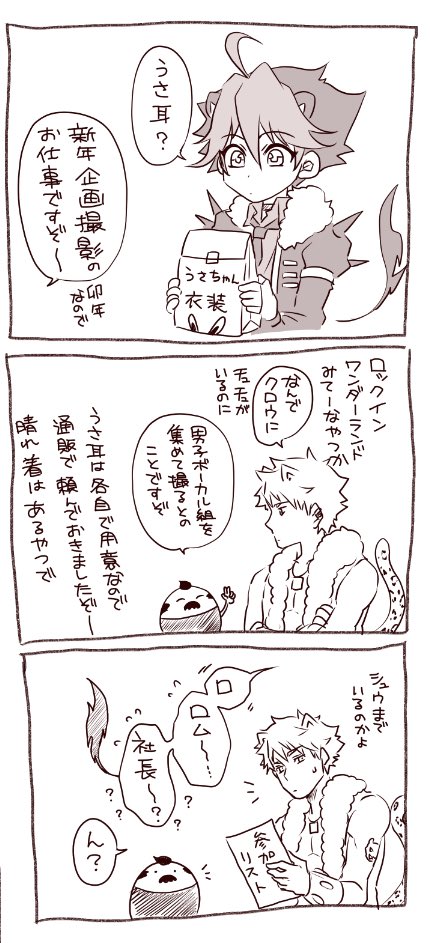 うさ耳？
新年企画撮影の
お仕事ですぞ〜
卯年
なので
うさちゃん
衣装
ロックイン
ワンダーランド
みてーなやつか
なんで
クロウに
チュチュが
いるのに
男子ボーカル組を
集めて撮るとの
ことですぞ
うさ耳は各自で用意なので
通販で頼んでおきましたぞ〜
晴れ着はあるやつで
シュウまで
いるのかよ
ロ
ロム〜…
社長〜？
？
？
？
？
？
？
参加
リスト
ん？